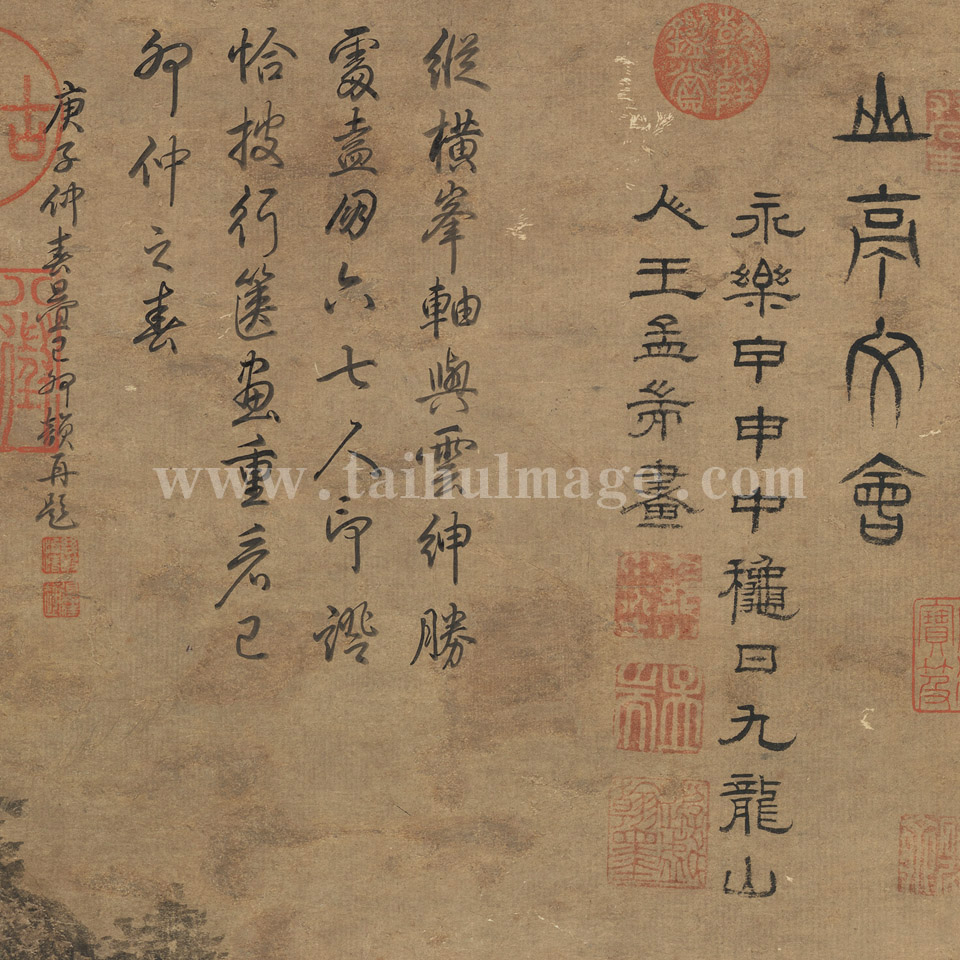 山亭文會
永樂甲申中龝日九龍山
人王孟耑畫
縱橫峯軸與雲紳勝
處盍朋六七人印證
恰披行篋畫重看己
卯仲之春
庚子仲春疊己卯韻再題
www.taihuImago.com